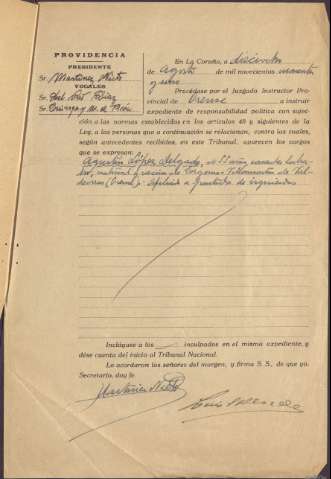 PROVIDENCIA
PRESIDENTE
Sr. Martinez Nieto
VOCALES
Sr.
Sr.
En La Coruña, a dieciocho
de Agosto de mil novecientos cuarenta
y uno
Procédase por el Juzgado Instructor Pro-
vincial de Orense a instruir
expediente de responsabilidad política con suje-
ción a las normas establecidas en los artículos 49 y siguientes de la
Ley, a las personas que a continuación se relacionan, contra las cuales,
según antecedentes recibidos, en este Tribunal, aparecen los cargos
que se expresan:
Agustín López Delgado, de 57 años, casado, labra-
dor, natural y vecino de
(Orense). Afiliado a partidos de izquierdas
Inclúyase a los inculpados en el mismo expediente, y
dése cuenta del inicio al Tribunal Nacional.
Lo acordaron los señores del margen, y firma S. S. de que yo,
Secretario, doy fe.
Martinez Nieto